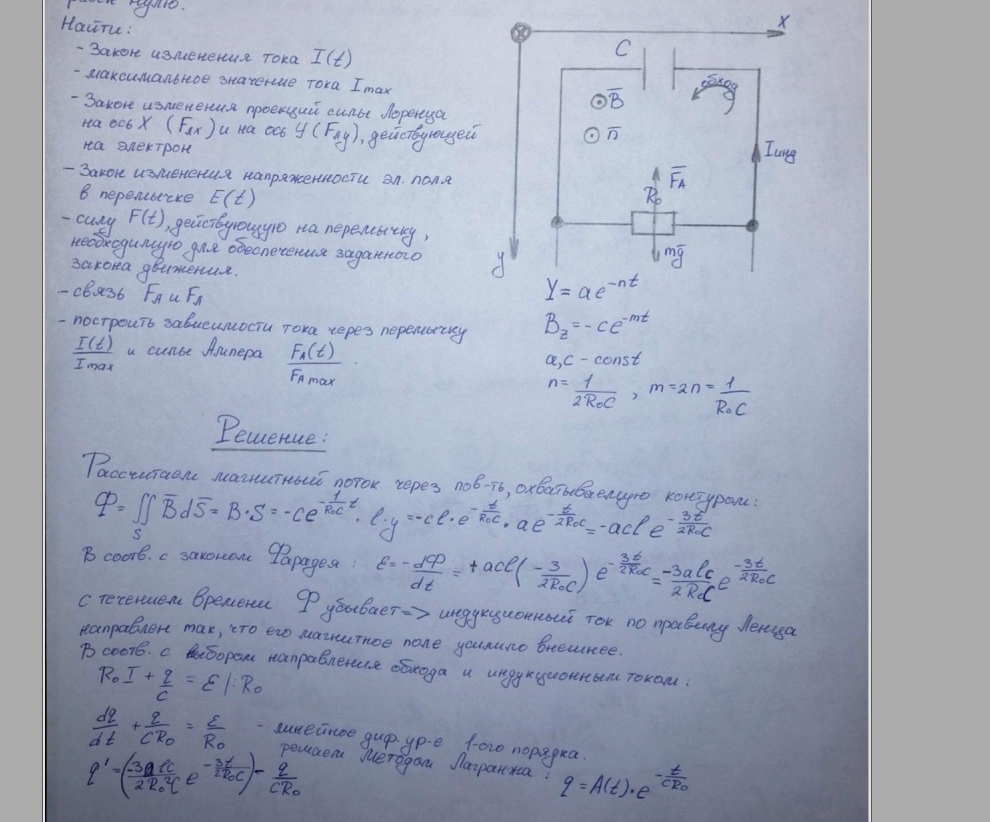 равен нулю.
Найти:
- Закон изменения тока I(t)
- максимальное значение тока Imax
- Закон изменения проекций силы Лоренца
на ось X (Fлx) и на ось Y (Fлy), действующей
на электрон
- Закон изменения напряженности эл. поля
в перемычке E(t)
- силу F(t), действующую на перемычку,
необходимую для обеспечения заданного
закона движения.
- связь FA и Fл
- построить зависимости тока через перемычку
I(t)/Imax и силы Ампера FA(t)/FA max .
X
C
обход
B̅
n̅
Iинд
F̅A
R₀
mg̅
y
Y = ae^(-nt)
Bz = -ce^(-mt)
a,c - const
n = 1/(2R₀C) , m = 2n = 1/(R₀C)
Решение:
Рассчитаем магнитный поток через пов-ть, охватываемую контуром:
Ф = ∬S B̅dS̅ = B·S = -ce^(-1/(R₀C) t) · l·y = -cl·e^(-t/(R₀C)) · ae^(-t/(2R₀C)) = -acl e^(-3t/(2R₀C))
В соотв. с законом Фарадея : ε = -dФ/dt = +acl(-3/(2R₀C)) e^(-3t/(2R₀C)) = -3alc/(2R₀C) e^(-3t/(2R₀C))
с течением времени Ф убывает => индукционный ток по правилу Ленца
направлен так, что его магнитное поле усилило внешнее.
В соотв. с выбором направления обхода и индукционным током :
R₀I + q/c = ε |: R₀
dq/dt + q/(CR₀) = ε/R₀ - линейное диф. ур-е 1-ого порядка.
решаем Методом Лагранжа :
q' = (-3alc/(2R₀²C) e^(-3t/(2R₀C))) - q/(CR₀)
q = A(t)·e^(-t/(CR₀))